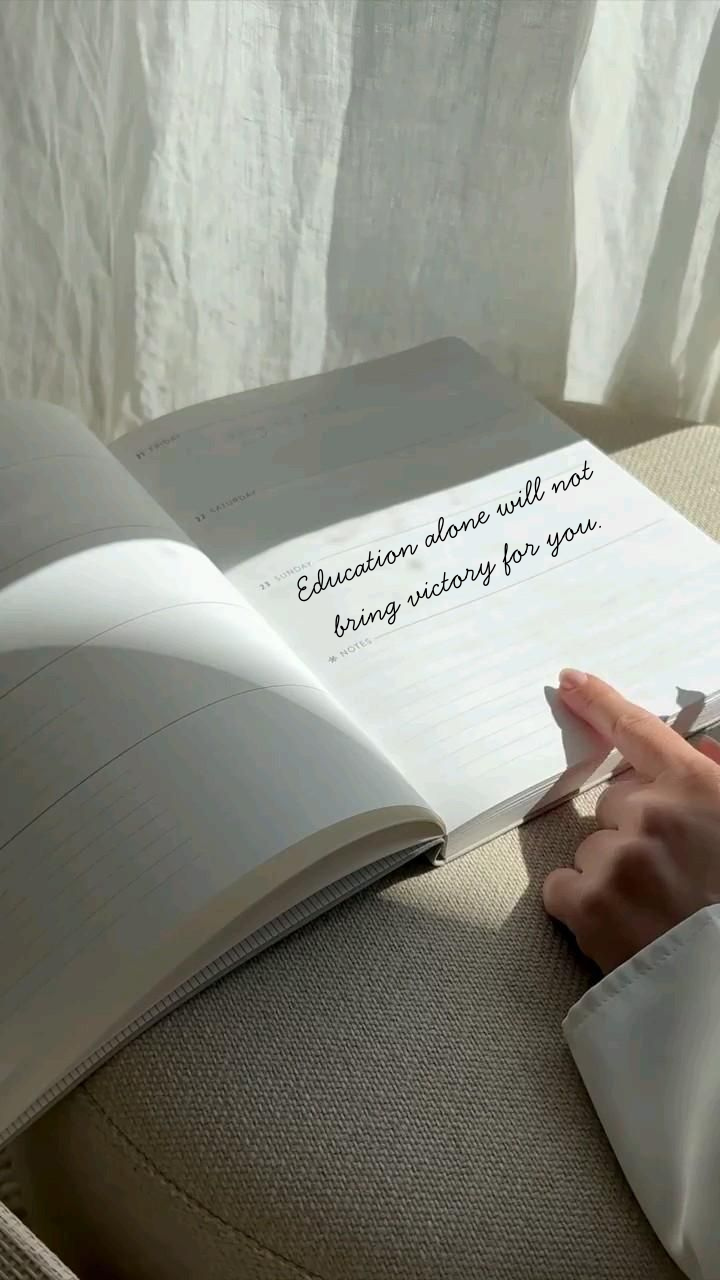 21 FRIDAY
22 SATURDAY
23 SUNDAY
Education alone will not
bring victory for you.
* NOTES